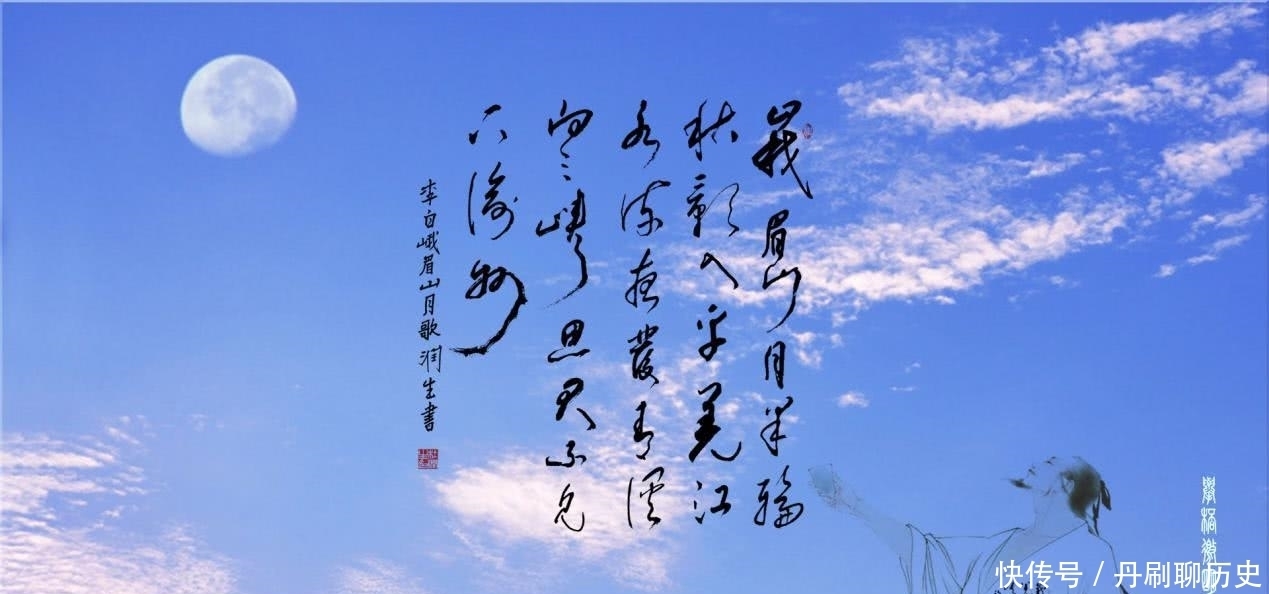 峩眉山月半輪
秋影入平羌江
水流夜發清溪
向三峽思君不見
下渝州
李白峨眉山月歌 潤生書
舉杯邀明
快传号 / 丹刷聊历史